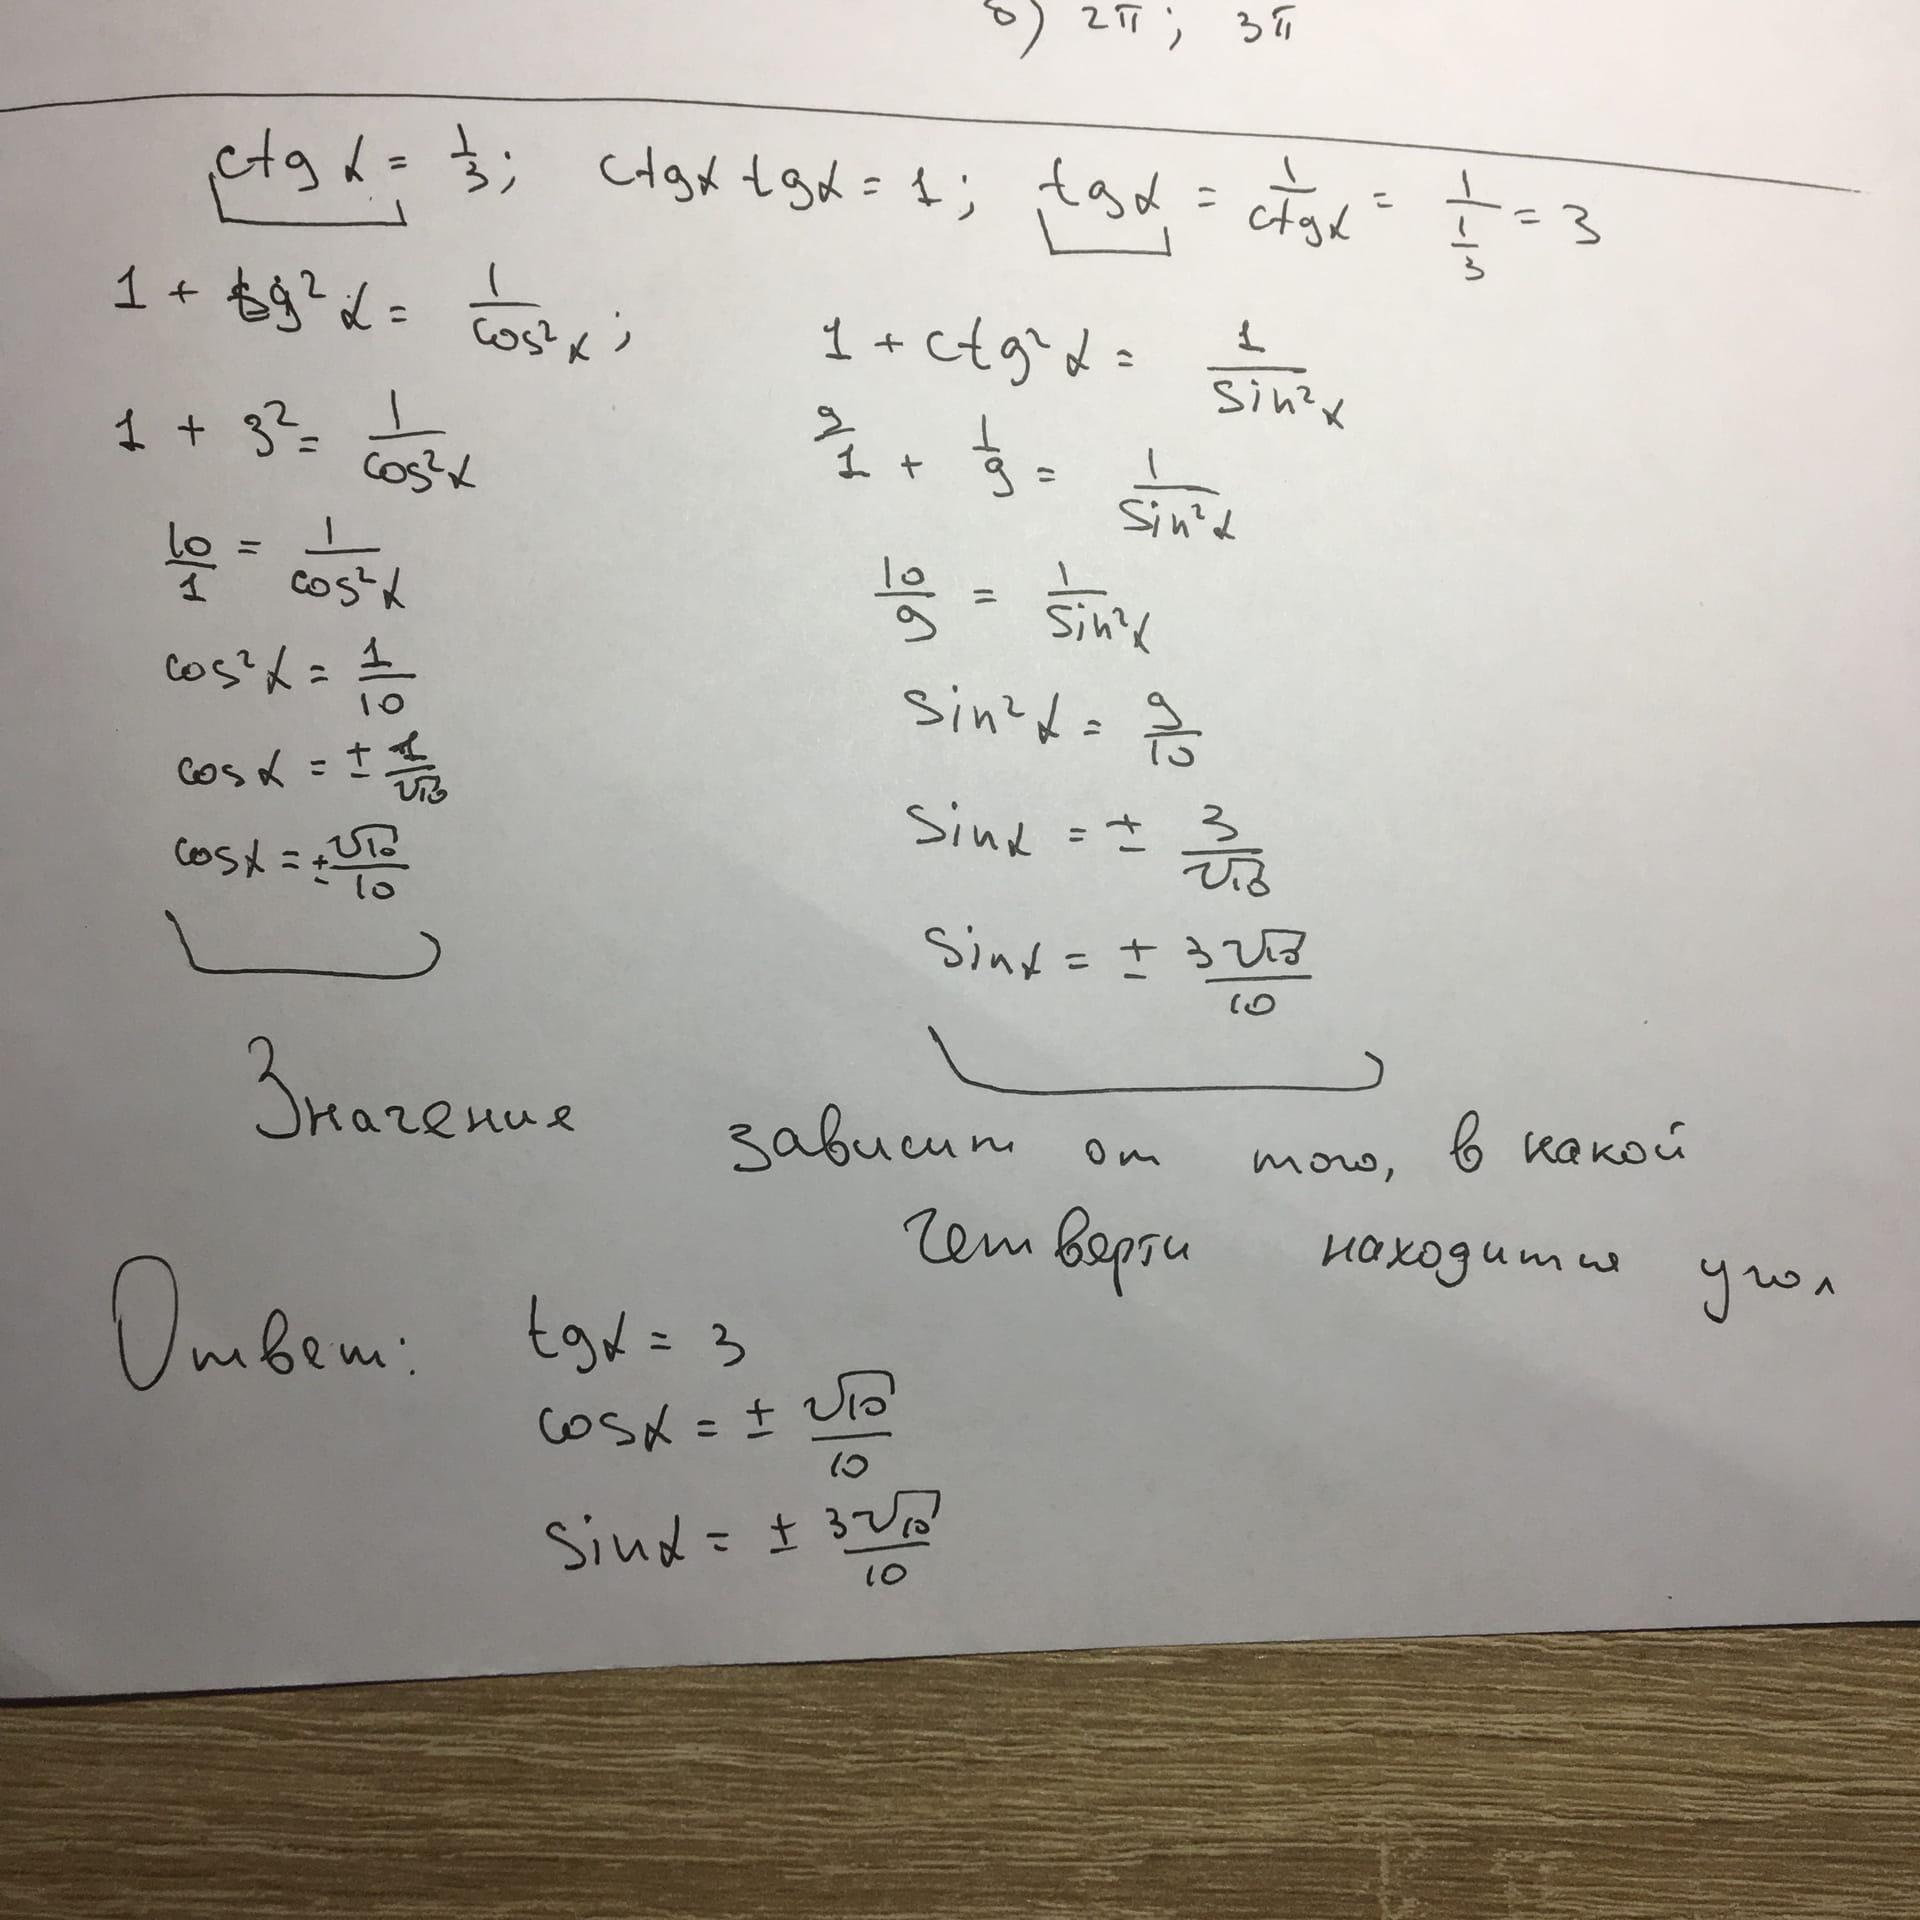 б) 2π; 3π
ctg α = 1/3; ctgα tgα = 1; tgα = 1/ctgα = 1/(1/3) = 3
1 + tg² α = 1/cos²α;
1 + 3² = 1/cos²α
10/1 = 1/cos²α
cos²α = 1/10
cosα = ± 1/√10
cosα = ± √10/10
1 + ctg² α = 1/sin²α
9/ 1 + 1/9 = 1/sin²α
10/9 = 1/sin²α
sin²α = 9/10
sinα = ± 3/√10
sinα = ± 3√10/10
Значение зависит от того, в какой
четверти находится угол
Ответ: tgα = 3
cosα = ± √10/10
sinα = ± 3√10/10